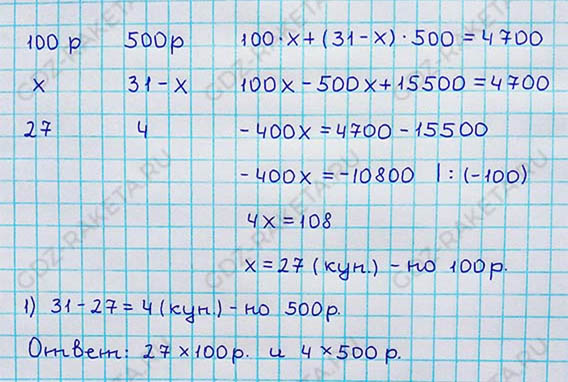 100 р 500р 100·x+(31-x)·500=4700
x 31-x 100x-500x+15500=4700
27 4 -400x=4700-15500
-400x=-10800 |:(-100)
4x=108
x=27 (куп.)-по 100р.
1) 31-27=4 (куп.)-по 500р.
Ответ: 27×100р. и 4×500р.
GDZ-RAKETA.RU